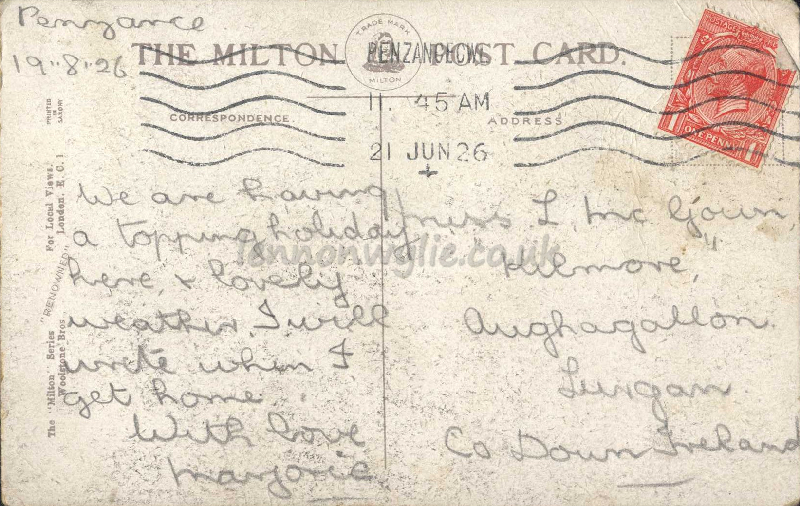 Penzance
19.8.26
THE MILTON POST CARD.
TRADE MARK
MILTON
PENZANCE
11. 45 AM
21 JUN 26
CORRESPONDENCE.
ADDRESS
ONE PENNY
PRINTED IN SAXONY
The "Milton Series "RENOWNED" For Local Views.
Woolstone Bros London. E.C.1
We are having
a topping holiday
here, & lovely
weather. I will
write when I
get home.
With love
Marjorie.
Miss L. Mc Gown,
"Kilmore,"
Aughagallon.
Lurgan
Co Down Ireland
lennonwylie.co.uk